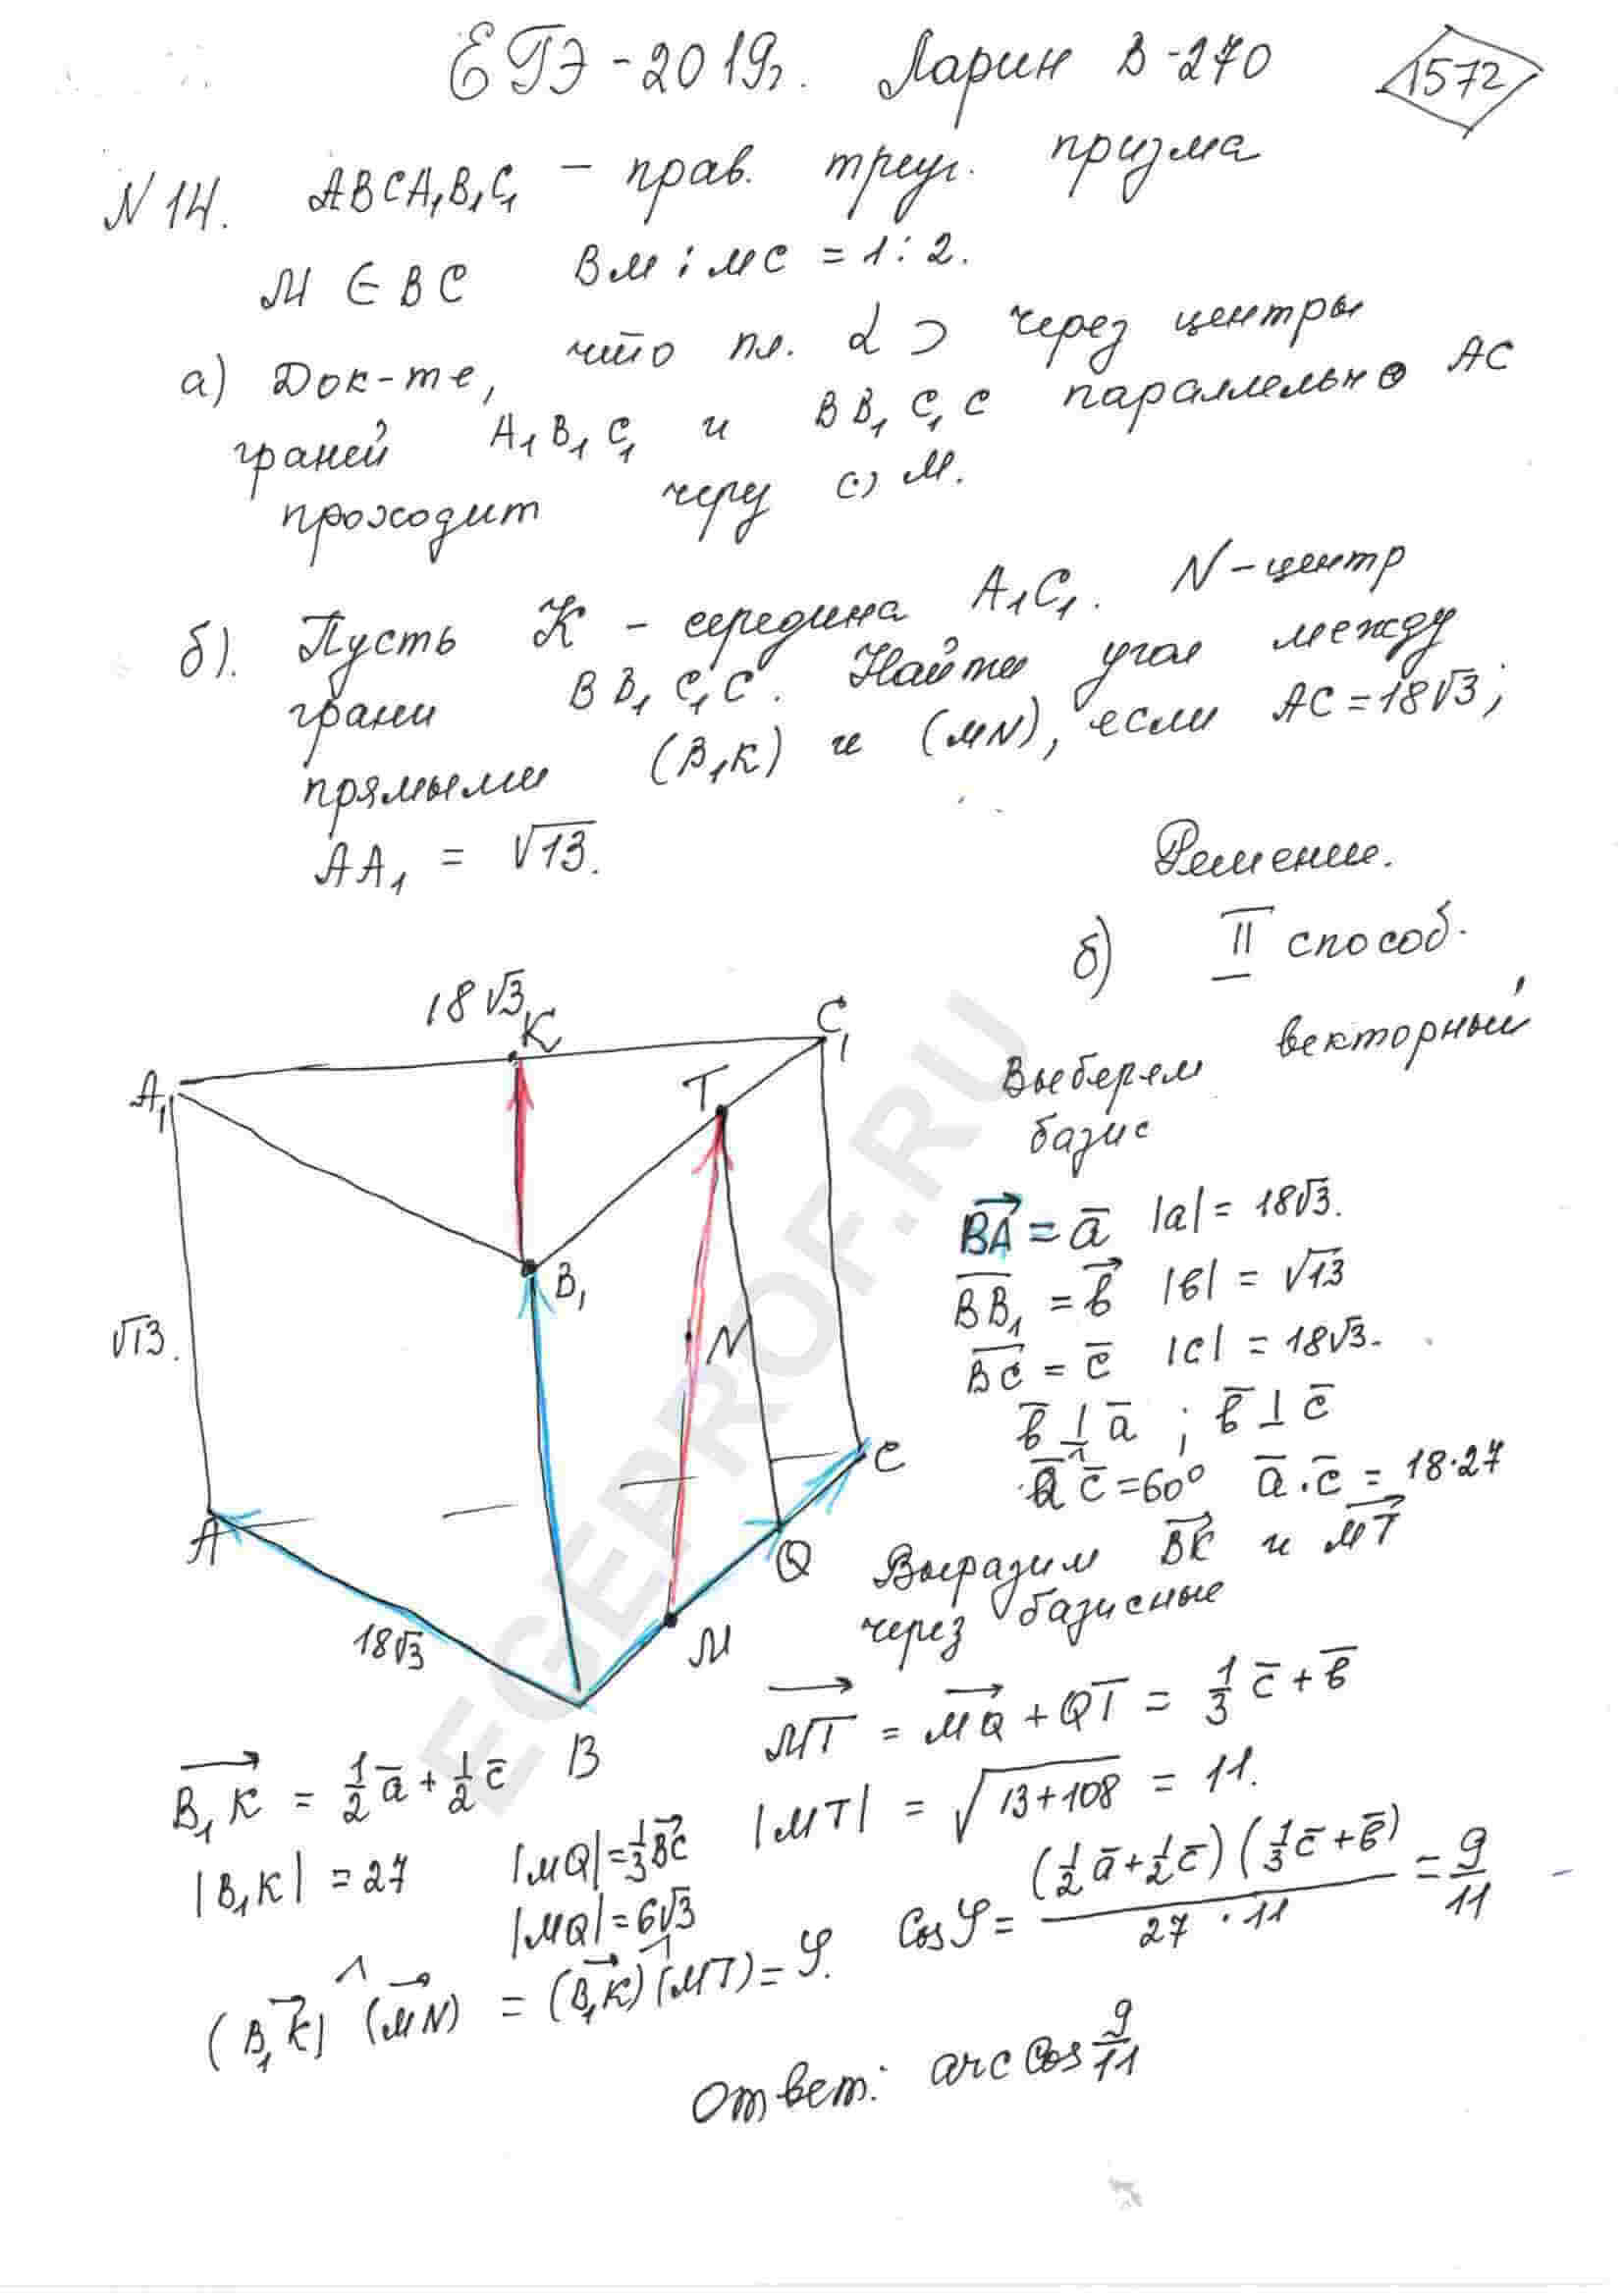 ЕГЭ-2019г. Ларин В-270
1572
N14. ABCA₁B₁C₁ – прав. треуг. призма
M ∈ BC BM : MC = 1 : 2.
а) Док-те, что пл. α ⊃ через центры
граней A₁B₁C₁ и BB₁C₁C параллельно AC
проходит черу (·) M.
б). Пусть K – середина A₁C₁. N – центр
грани BB₁C₁C. Найти угол между
прямыми (B₁K) и (MN), если AC = 18√3;
AA₁ = √13.
Решение.
б) II способ.
векторный
Выберем
базис
BA = a |a| = 18√3.
BB₁ = b |b| = √13
BC = c |c| = 18√3.
b ⊥ a ; b ⊥ c
a^c = 60° a · c = 18·27
Выразим BK и MT
через базисные
18√3
K
C₁
A₁
T
B₁
√13.
N
A
C
Q
M
18√3
B
MT = MQ + QT = 1/3 c + b
B₁K = 1/2 a + 1/2 c
|MT| = √13+108 = 11.
|B₁K| = 27
|MQ| = 1/3 BC
|MQ| = 6√3
Cos φ = (1/2 a + 1/2 c)(1/3 c + b) / 27 · 11 = 9/11
(B₁K) ^ (MN) = (B₁K) ^ (MT) = φ.
Ответ: arccos 9/11
EGEPROF.RU